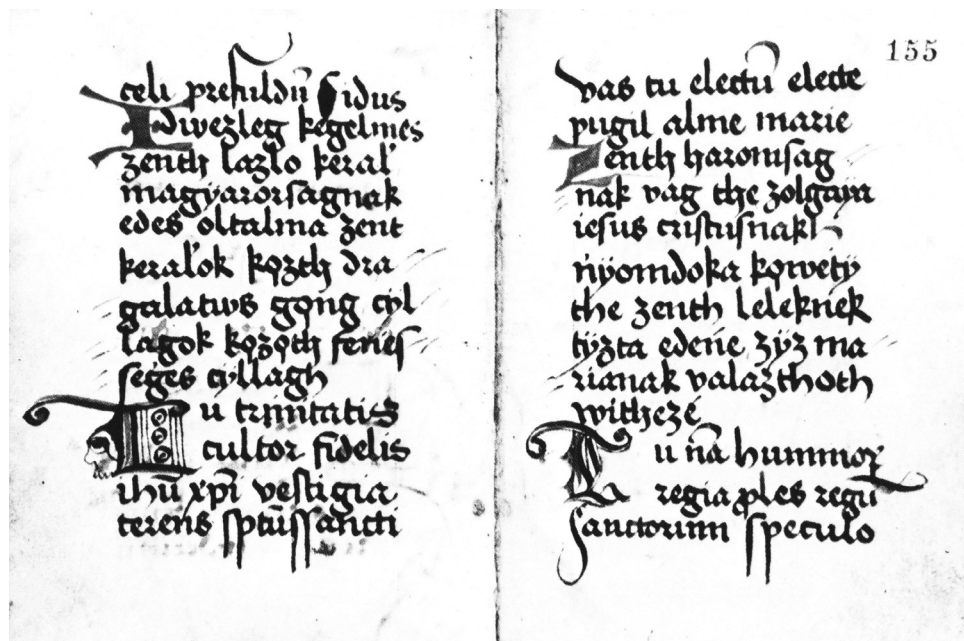 celi presuldū sidus
Idwezleg kegelmes
zenth lazlo keral'
magyarorsagnak
edes oltalma zent
keral'ok kǫzth dra
galatws gǫng cyl
lagok kǫzǫth fenes
seges cyllagh
Tu trinitatis
cultor fidelis
ihū xpī vestigia
terens sptūssancti
155
vas tu electū electe
pugil alme marie
Zenth haromsag
nak vag the zolgaya
iesus cristusnak
nÿomdoka kǫwetÿ
the zenth leleknek
tÿzta edene zÿz ma
rianak valazthoth
witheze
Tu n̄a hummoꝝ
regia ꝓles regū
sanctorum speculo